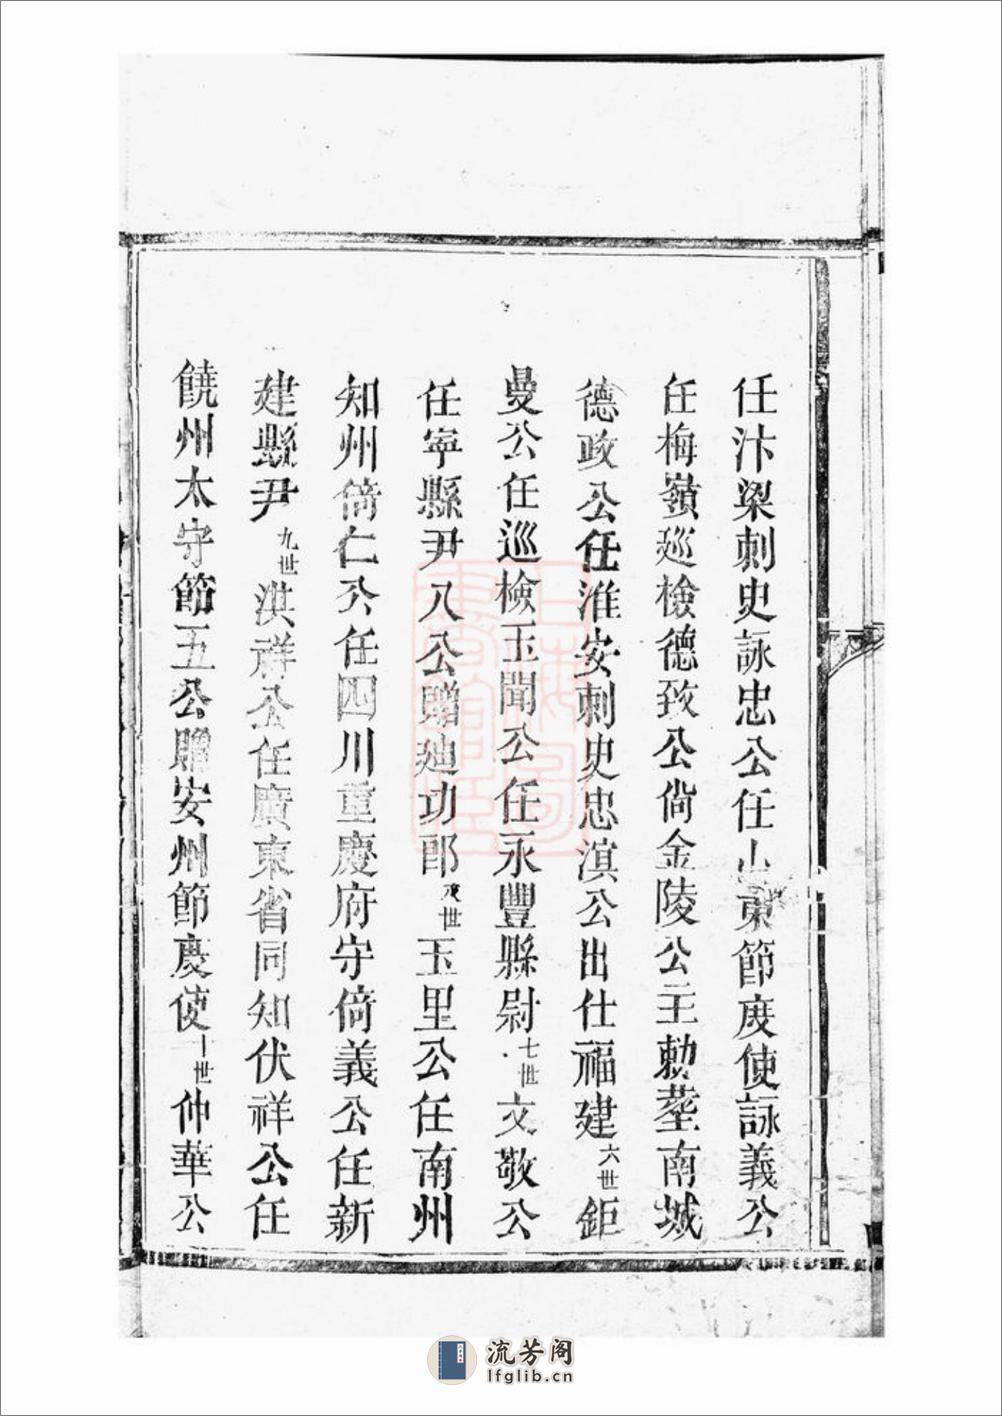 任汴梁刺史詠忠公任山東節度使詠義公
任梅嶺廵檢德致公尚金陵公主勅塟南城
德政公任淮安刺史忠滨公出仕福建六世鉅
曼公任巡檢玉聞公任永豐縣尉七世文敬公
任寧縣尹八公贈廸功郎世玉里公任南州
知州倚仁公任四川重慶府守倚義公任新
建縣尹九世淇祥公任廣東省同知伏祥公任
饒州太守節五公贈安州節度使十世仲華公
上海圖書館藏
流芳阁
lfglib.cn